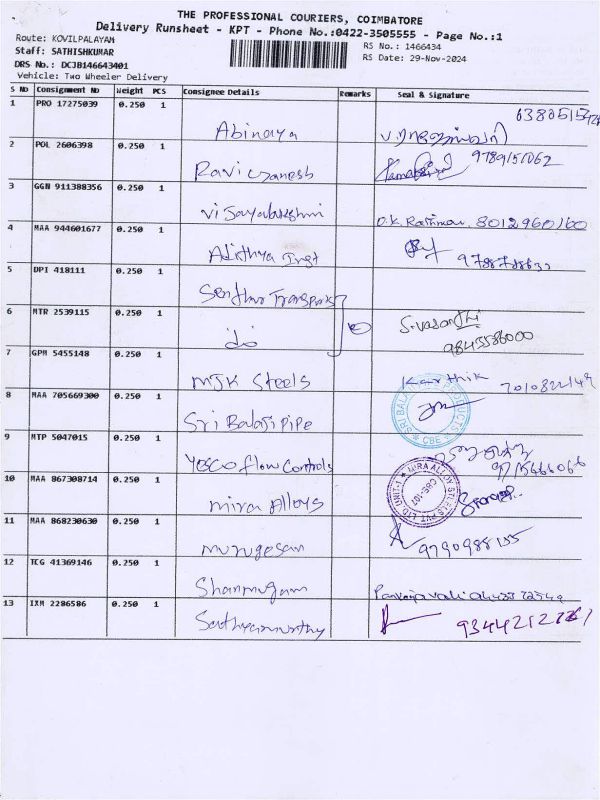 THE PROFESSIONAL COURIERS, COIMBATORE
Delivery Runsheet - KPT - Phone No.:0422-3505555 - Page No.:1
Route: KOVILPALAYAM
RS No.: 1466434
Staff: SATHISHKUMAR
RS Date: 29-Nov-2024
DRS No.: DCJB146643401
Vehicle: Two Wheeler Delivery
S No Consignment No Weight PCS Consignee Details Remarks Seal & Signature
1 PRO 17275039 0.250 1 Abinaya
2 POL 2606398 0.250 1 Ravi Ganesh 9789151062
3 GGN 911388356 0.250 1 Vijayalakshmi 8012960160
4 MAA 944601677 0.250 1 Adithya Inst
5 DPI 418111 0.250 1 Senthur Transports
6 MTR 2539115 0.250 1 do S.vasanthi
9845586000
7 GPM 5455148 0.250 1 MJK Steels Karthik
8 MAA 705669300 0.250 1 Sri Balaji Pipe SRI BALA PRODUCTS CBE
9 MTP 5047015 0.250 1 Yosco flow Controls
10 MAA 867308714 0.250 1 mira Alloys MIRA ALLOY STEELS PVT LTD UNIT-1 CBE-107
11 MAA 868230630 0.250 1 murugesan 9790988135
12 TCG 41369146 0.250 1 Shanmugam
13 IXM 2286586 0.250 1 Sathyamurthy